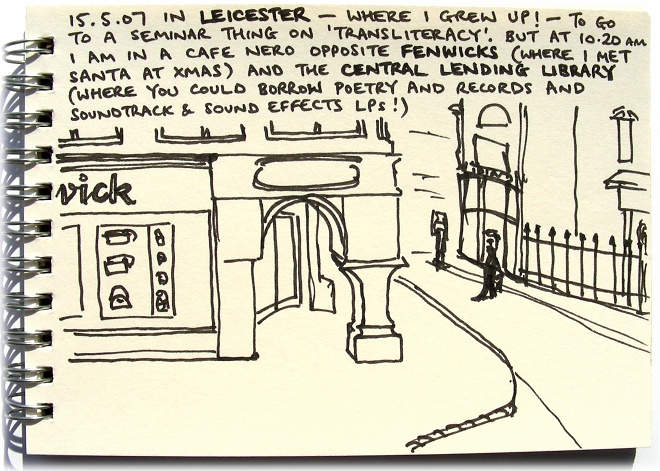 15.5.07 IN LEICESTER – WHERE I GREW UP! – TO GO
TO A SEMINAR THING ON 'TRANSLITERACY'. BUT AT 10.20 AM
I AM IN A CAFE NERO OPPOSITE FENWICKS (WHERE I MET
SANTA AT XMAS) AND THE CENTRAL LENDING LIBRARY
(WHERE YOU COULD BORROW POETRY AND RECORDS AND
SOUNDTRACK & SOUND EFFECTS LPs!)
wick